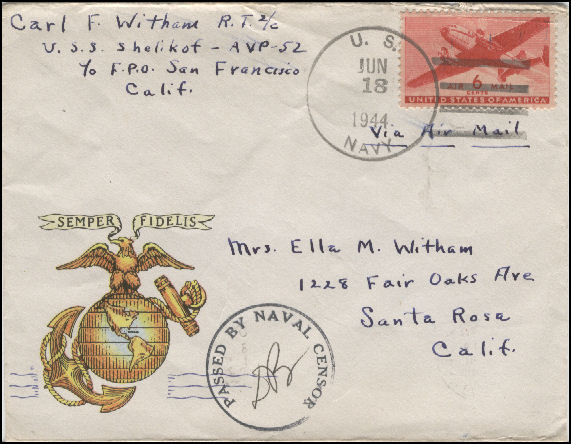 Carl F. Witham R.T. 2/c
U.S.S. Shelikof - AVP-52
℅ F.P.O. San Francisco
Calif.
U. S.
JUN
18
1944
NAVY
AIR 6 MAIL
CENTS
UNITED STATES OF AMERICA
Via Air Mail
SEMPER FIDELIS
Mrs. Ella M. Witham
1228 Fair Oaks Ave
Santa Rosa
Calif.
PASSED BY NAVAL CENSOR